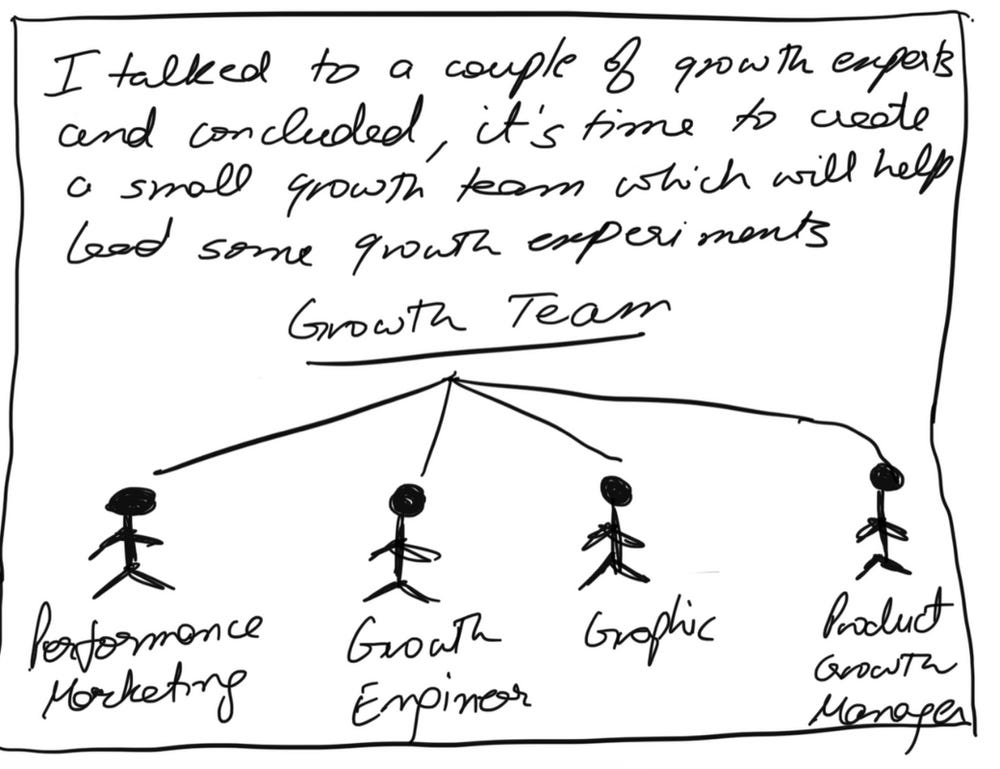 I talked to a couple of growth experts
and concluded, it's time to create
a small growth team which will help
lead some growth experiments
Growth Team
Performance
Marketing
Growth
Engineer
Graphic
Product
Growth
Manager